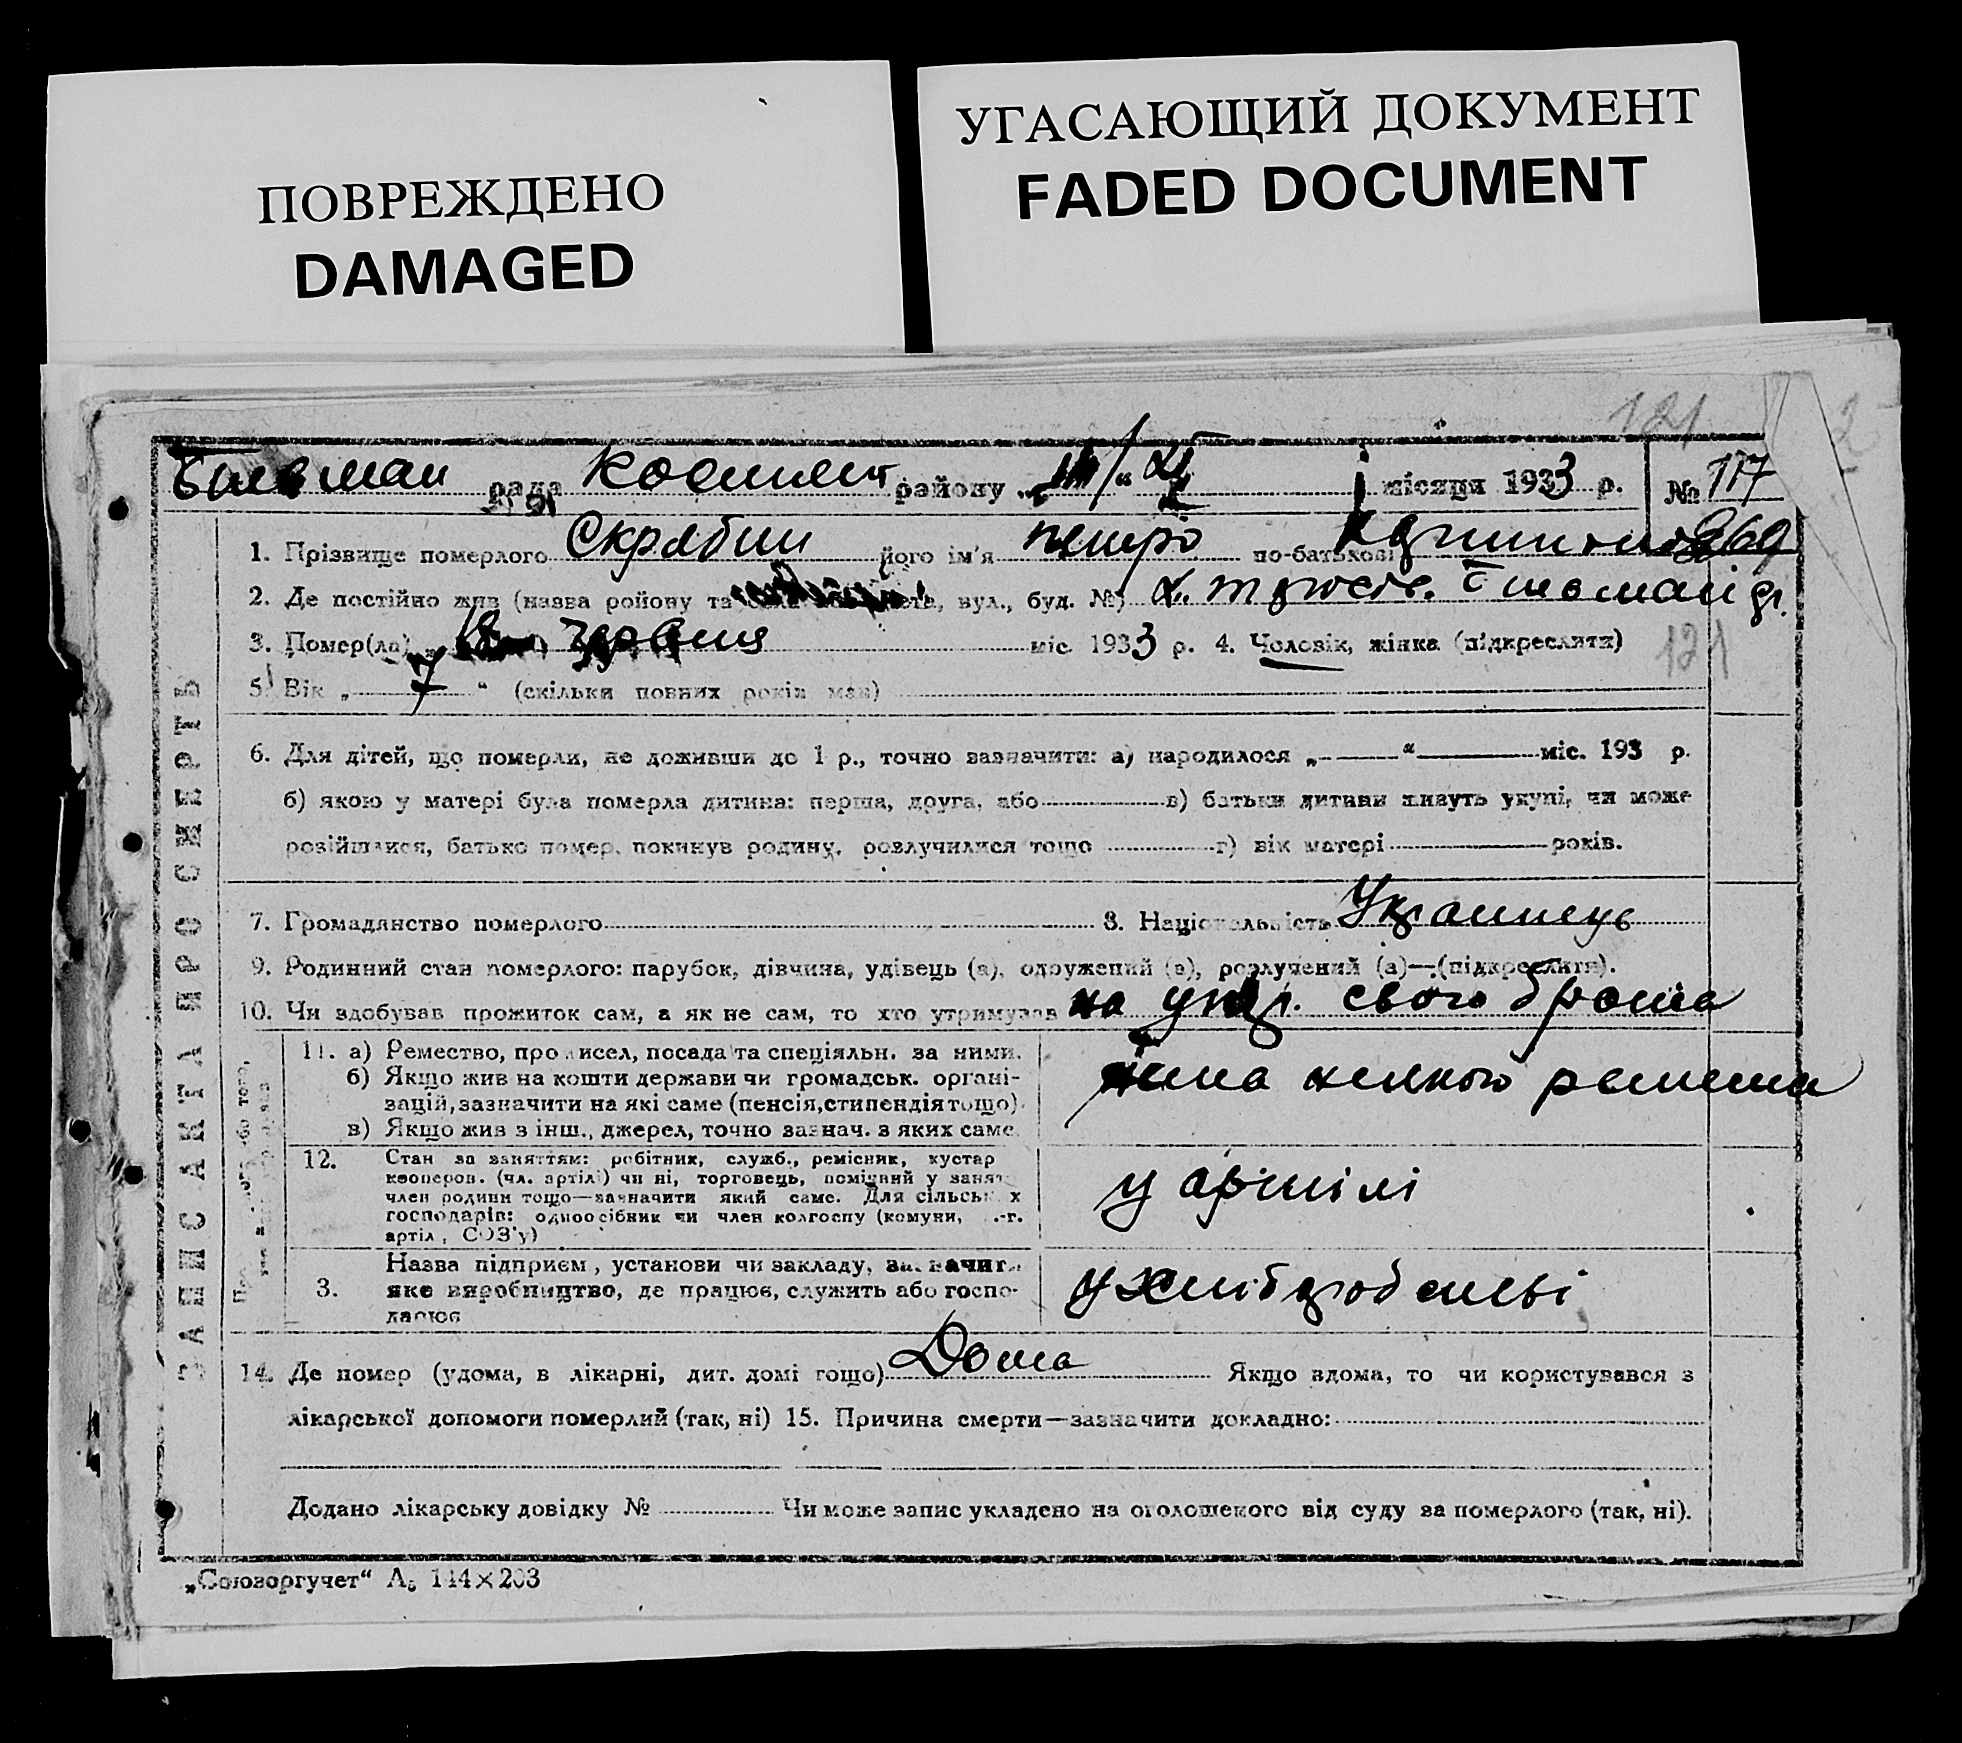 ПОВРЕЖДЕНО
DAMAGED
УГАСАЮЩИЙ ДОКУМЕНТ
FADED DOCUMENT
121
рада району місяця 1933 р. № 117
1. Прізвище померлого Скрябин його ім'я Петро по-батькові 269
2. Де постійно жив (назва району та вул., буд. №)
3. Помер(ла) „ 18 " червня міс. 1933 р. 4. Чоловік, жінка (підкреслити) 121
5. Вік „ 7 " (скільки повних років мав)
6. Для дітей, що померли, не доживши до 1 р., точно зазначити: а) народилося „ — " — міс. 193 р.
б) якою у матері була померла дитина: перша, друга, або в) батьки дитини живуть укупі, чи може
розійшлися, батько помер, покинув родину, розлучилися тощо г) вік матері років.
7. Громадянство померлого 8. Національність Українець
9. Родинний стан померлого: парубок, дівчина, удівець (а), одружений (а), розлучений (а)—(підкреслити).
10. Чи здобував прожиток сам, а як не сам, то хто утримував на утр. свого брата
11. а) Ремество, промисел, посада та спеціяльн. за ними.
б) Якщо жив на кошти держави чи громадськ. органі-
зацій, зазначити на які саме (пенсія, стипендія тощо).
в) Якщо жив з інш., джерел, точно зазнач. з яких саме
12. Стан за заняттям: робітник, служб., ремісник, кустар
кооперов. (чл. артілі) чи ні, торговець, помічний у занят.
член родини тощо—зазначити який саме. Для сільськ х
господарів: одноосібник чи член колгоспу (комуни, .-г.
артіл, СОЗ'у)
у артілі
3. Назва підприєм, установи чи закладу, зазначит
яке виробництво, де працює, служить або госпо-
дарює
у хліборобстві
14. Де помер (удома, в лікарні, дит. домі тощо) Дома Якщо вдома, то чи користувався з
лікарської допомоги померлий (так, ні) 15. Причина смерти—зазначити докладно:
Додано лікарську довідку № Чи може запис укладено на оголошеного від суду за померлого (так, ні).
ЗАПИС АКТА ПРО СМЕРТЬ
„Союзоргучет" А5 144×203